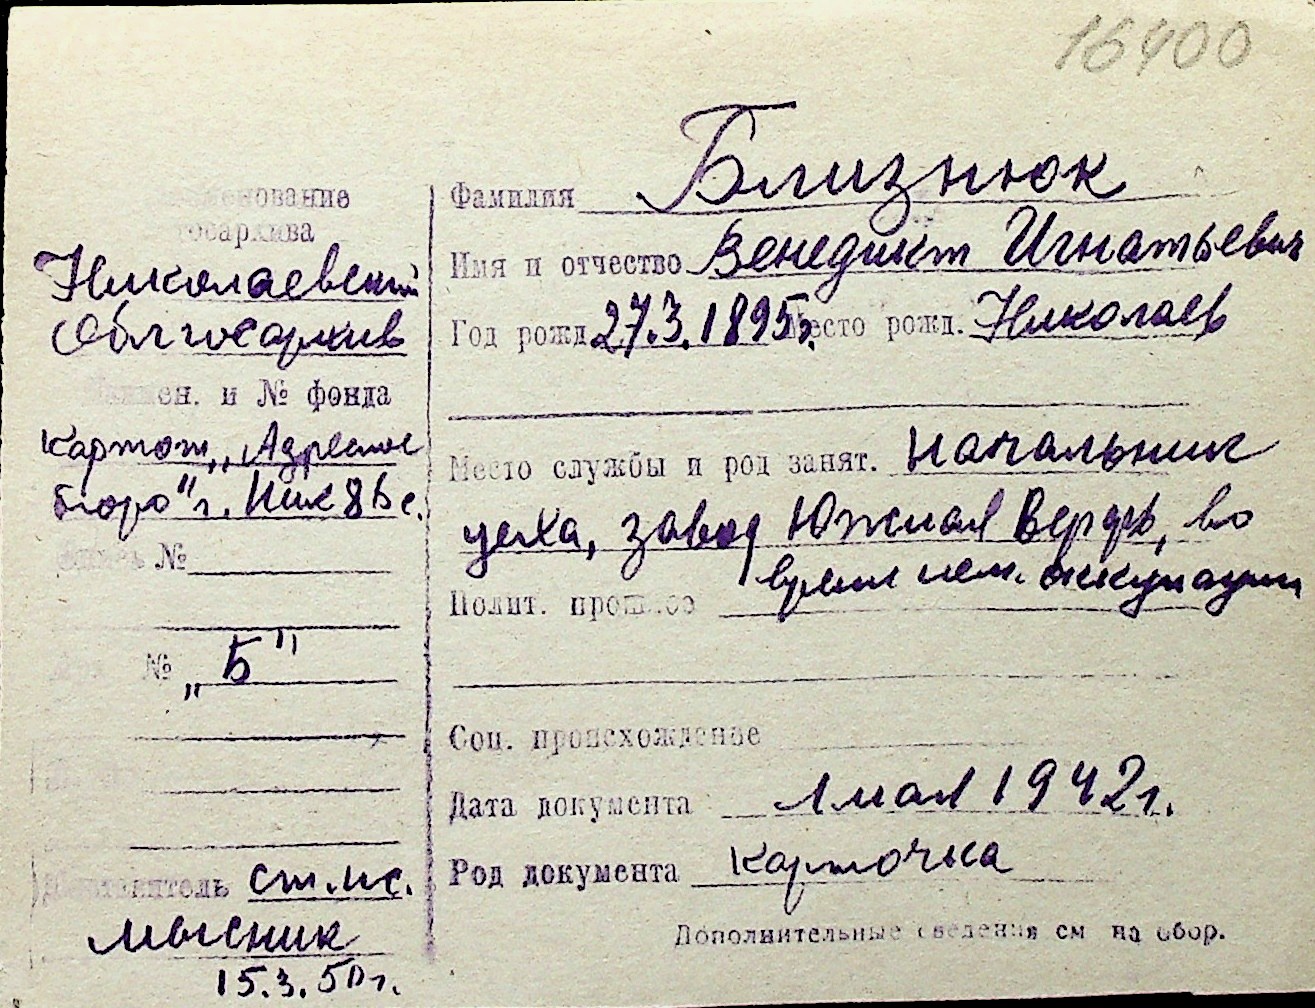 16400
Наименование
госархива
Николаевский
Облгосархив
Наимен. и № фонда
картот. „Адресное
бюро" г. Ник
Опись №
№ „Б"
Составитель
Мысник
15.3.50 г.
Фамилия Близнюк
Имя и отчество Венедикт Игнатьевич
Год рожд. 27.3.1895г. Место рожд. Николаев
Место службы и род занят. начальник
цеха, завод Южная Верфь, во
время нем. оккупации
Полит. прошлое
Соц. происхождение
Дата документа 1 мая 1942 г.
Род документа карточка
Дополнительные сведения см на обор.